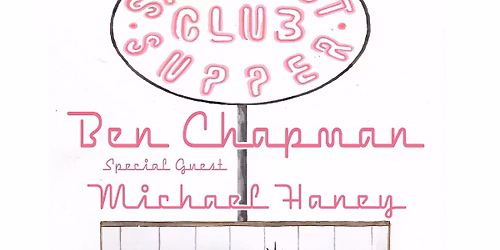 CLUB
SUPPER
Ben Chapman
Special Guest
Michael Haney